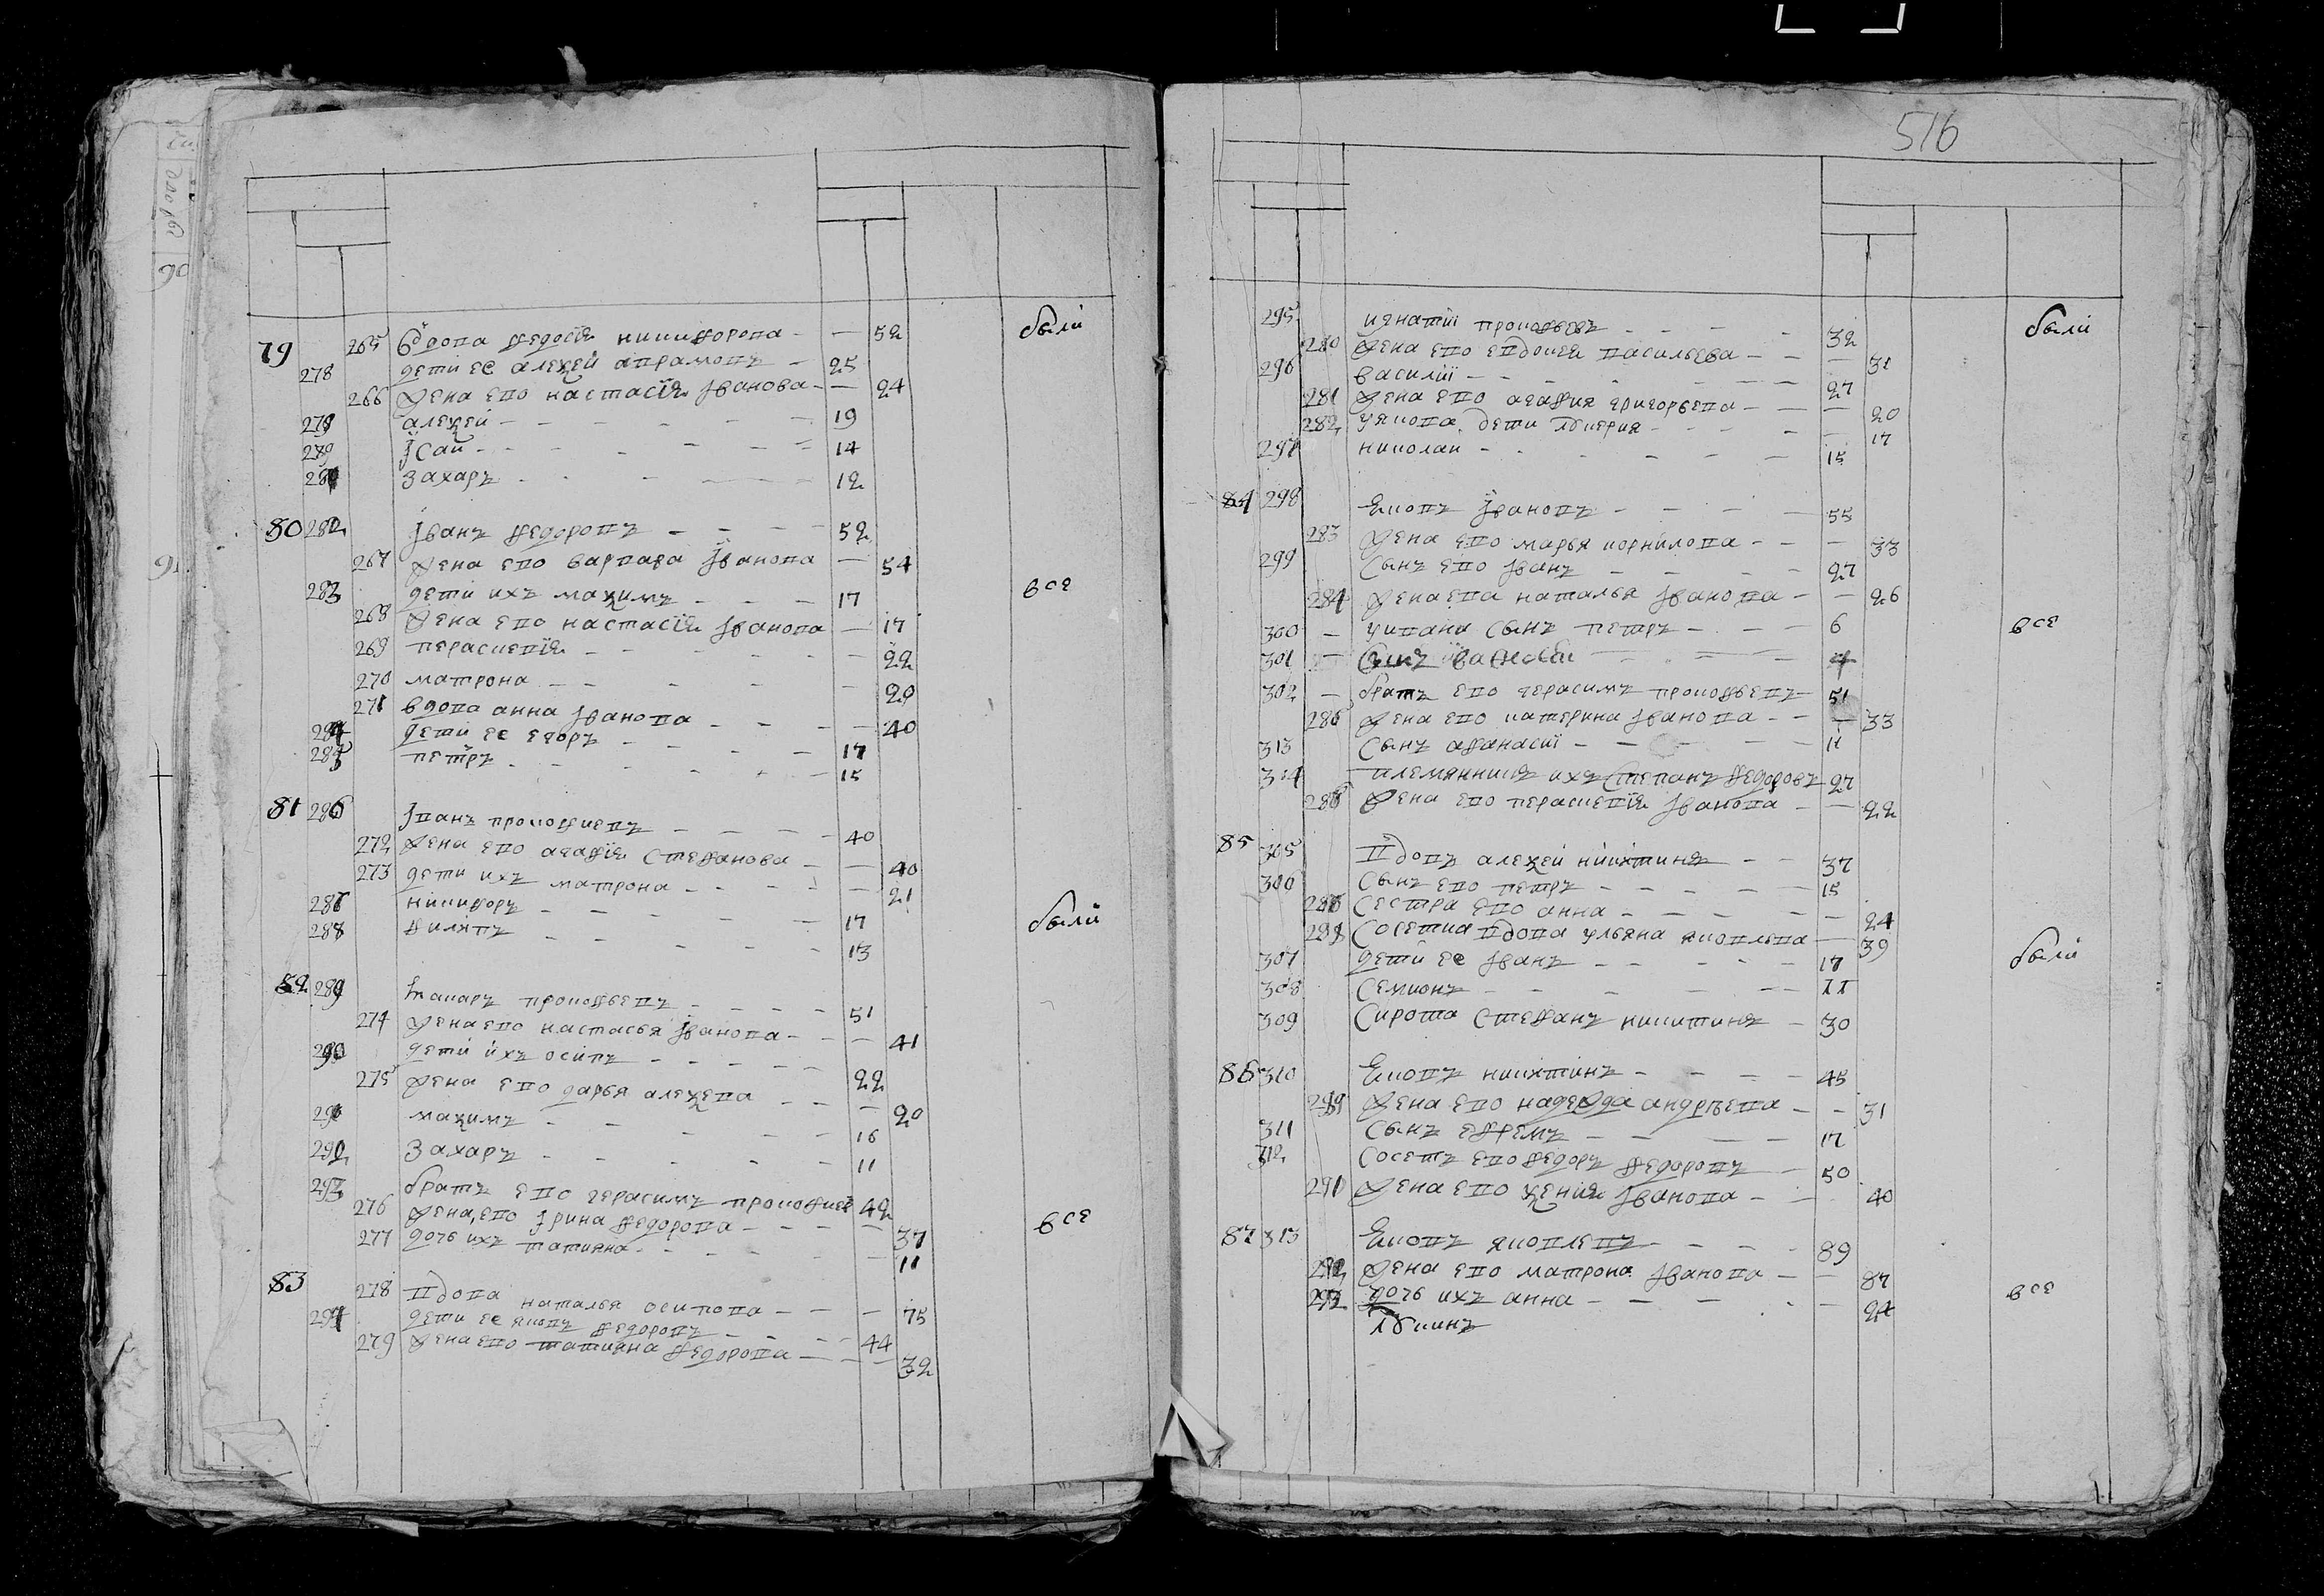 516
79 265 вдова федосїя никифорова 52 были
278 дети ее алеѯей аврамовъ 25
266 жена ево настасїя Iванова 24
279 алеѯей 19
279 Iсаи 14
захаръ 12
80 282 Iванъ федоровъ 52
267 жена ево варвара Iванова 54
283 дети ихъ маѯимъ 17 все
268 жена ево настасїя Iванова 17
269 перасковїя 22
270 матрона 20
271 вдова анна Iванова 40
284 дети ее егоръ 17
285 петръ 15
81 286 Iванъ прокофиевъ 40
272 жена ево агафїя стефанова 40
273 дети ихъ матрона 21
287 никифоръ 17
288 филипъ 13 были
82 289 макаръ прокофьевъ 51
274 жена ево настасья Iванова 41
290 дети ихъ осипъ 22
275 жена ево дарья алеѯева 20
291 маѯимъ 16
292 захаръ 11
293 братъ ево герасимъ прокофиев 42
276 жена ево Iрина федорова 37 все
277 дочь ихъ татияна 11
83 278 вдова наталья осипова 75
294 дети ее яковъ федоровъ 44
279 жена ево татияна федорова 32
295 игнатiй прокофьевъ 32 были
280 жена ево евдокея васильева 31
296 василiй 27
281 жена ево агафия григорьева 20
282 у якова дети лукерия 17
297 николаи 15
84 298 Яковъ Iвановъ 55
283 жена ево марья корнилова 33
299 сынъ ево Iванъ 27
284 жена ева наталья Iванова 26
300 у ивана сынъ петръ 6 все
301 сынъ 4
302 братъ ево герасимъ прокофьевъ 51
285 жена ево катерина Iванова 33
313 сынъ афанасиï 11
314 племянникъ ихъ степанъ федоровъ 27
286 жена ево перасковїя Iванова 22
85 305 вдовъ алеѯей никитинъ 37
306 сынъ ево петръ 15
сестра ево анна 24
288 соседка вдова ульяна яковлева 39
307 дети ее Iванъ 17 были
308 семионъ 11
309 сирота стефанъ никитинъ 30
86 310 Яковъ никитинъ 45
289 жена ево надежда андръева 31
311 сынъ ефремъ 17
312 соседъ ево федоръ федоровъ 50
291 жена ево ѯения Iванова 40
87 313 Яковъ яковлевъ 89
292 жена ево матрона Iванова 87
293 дочь ихъ анна 24 все